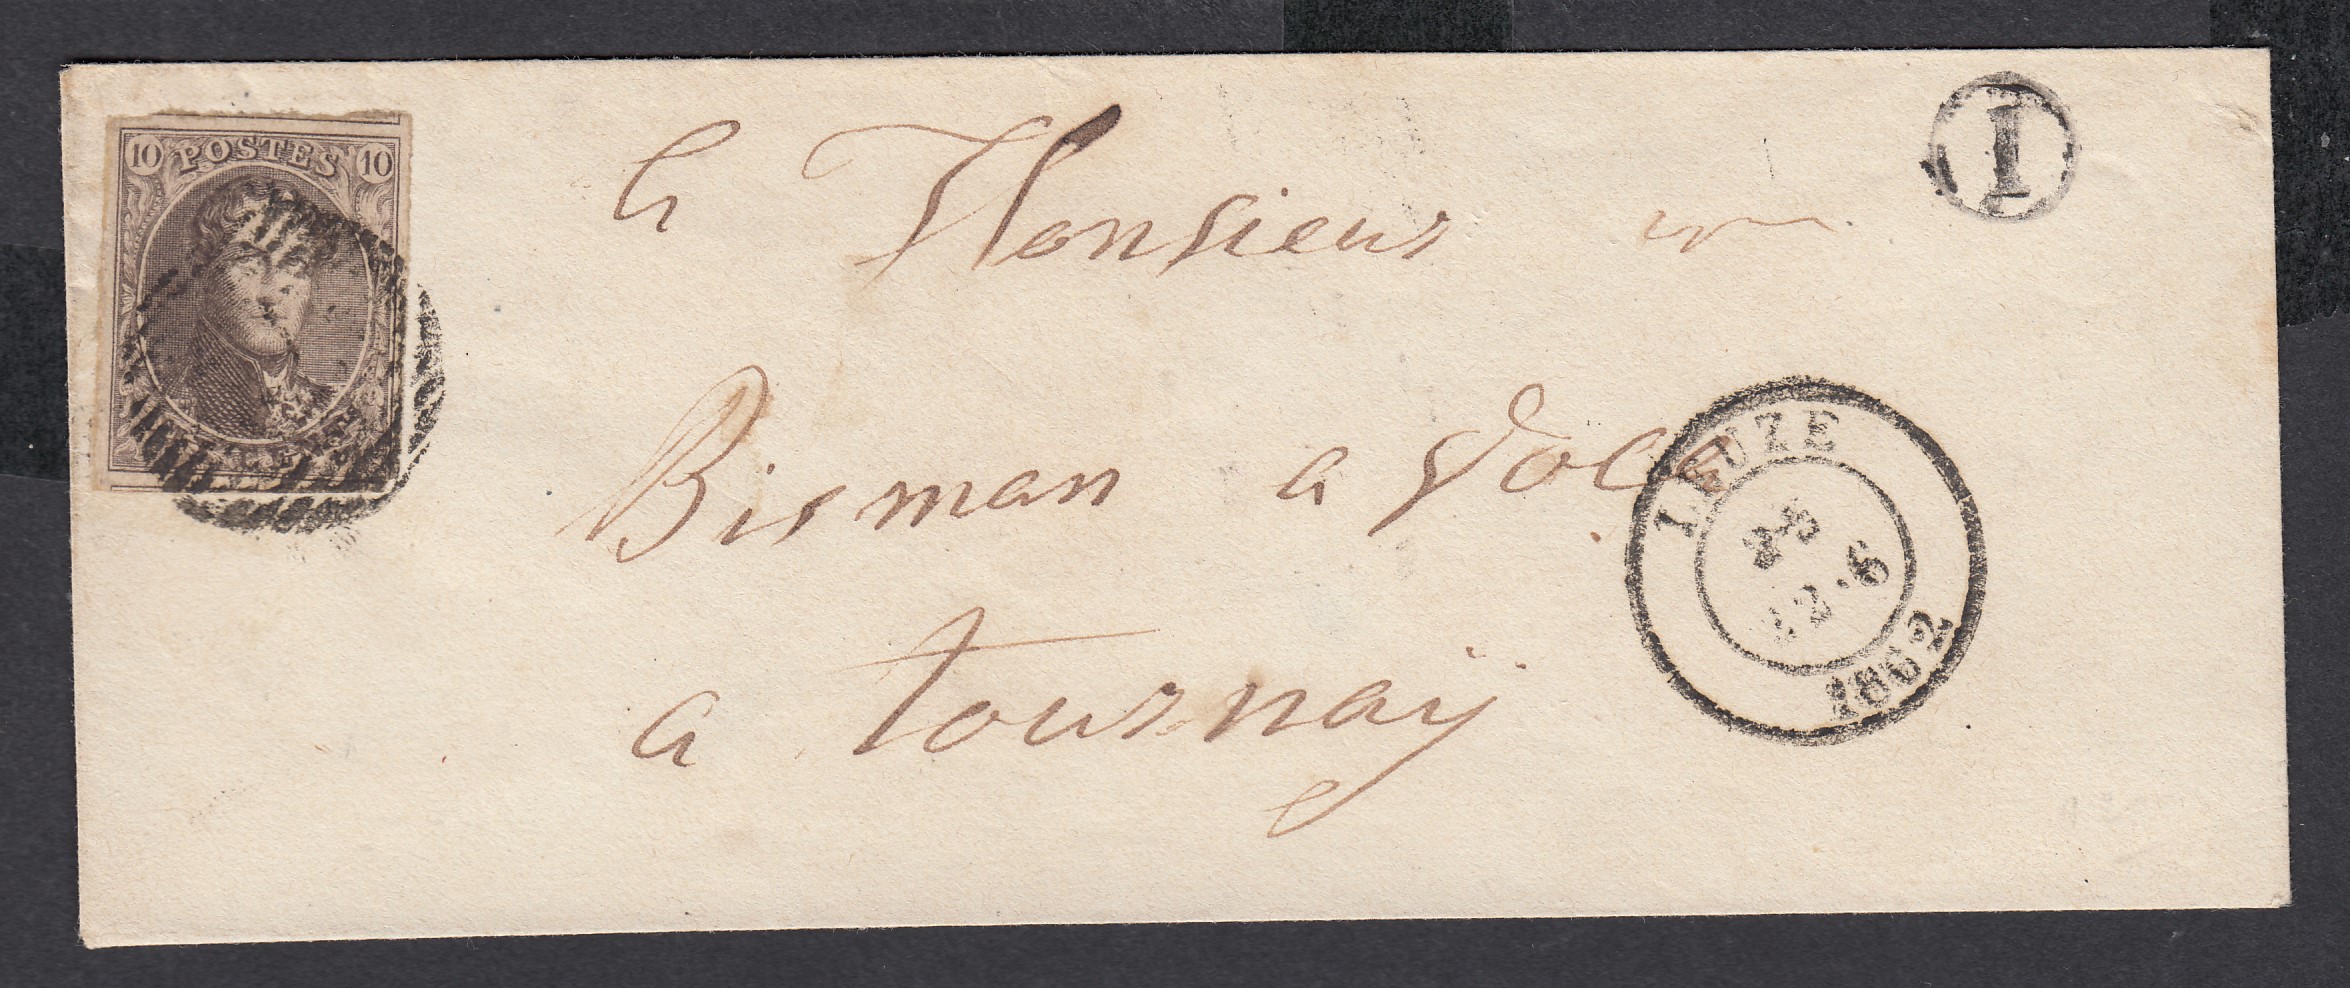 10 POSTES 10
I
a Monsieur
Bisman a
a tournaÿ
LEUZE
6
1862